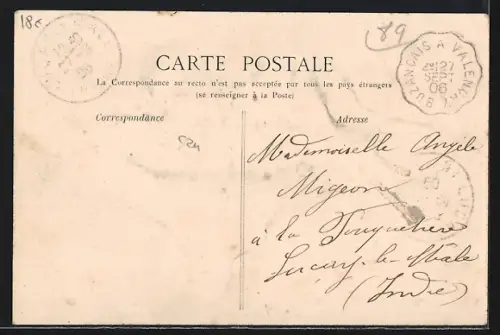 180
89
CARTE POSTALE
La Correspondance au recto n'est pas acceptée par tous les pays étrangers
(se renseigner à la Poste)
BUZANÇAIS A VALENÇAY
27
SEPT
06
Correspondance
Adresse
Mademoiselle Angèle
Migeon
à la Touquetière
Luçay-le-Mâle
(Indre)